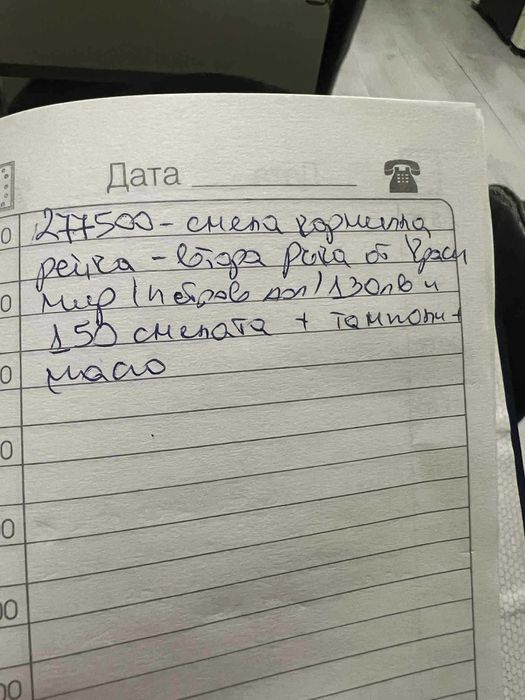 Дата
277500 - смена кормилна
рейка - втора рука от Краси
мир (Петров дол) 130лв и
150 смяната + тампони +
масло